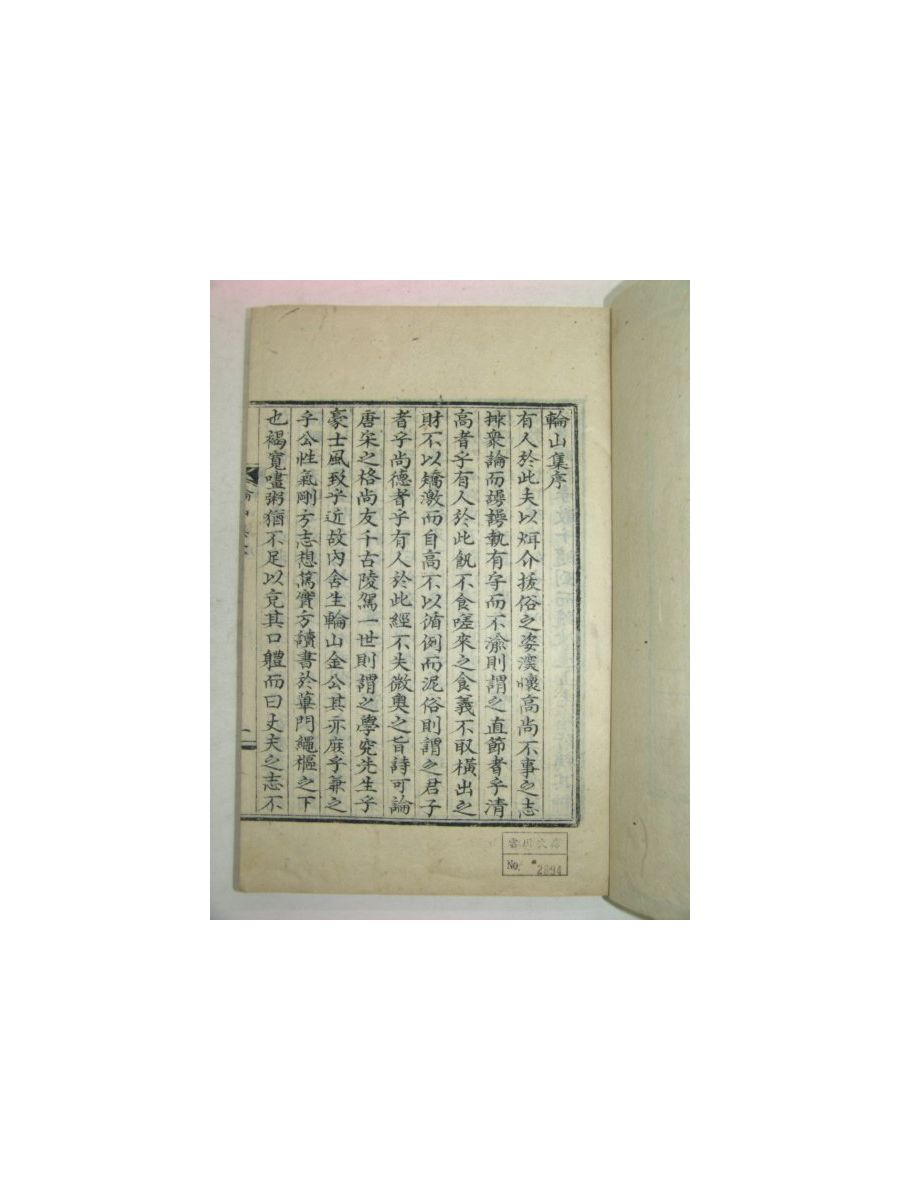 輪山集序
有人於此夫以烟介拔俗之姿漢懷高尚不事之志
排衆論而諤諤執有守而不渝則謂之直節者乎清
高者乎有人於此飢不食嗟來之食義不取橫出之
財不以矯激而自高不以循例而泥俗則謂之君子
者乎尚德者乎有人於此經不失微奧之旨詩可論
唐宋之格尚友千古陵駕一世則謂之學究先生乎
豪士風致乎近故內舍生輪山金公其亦庶乎兼之
乎公性氣剛方志想篤實方讀書於蓽門繩樞之下
也褐寬䵄粥猶不足以充其口軆而曰丈夫之志不
No. 2894